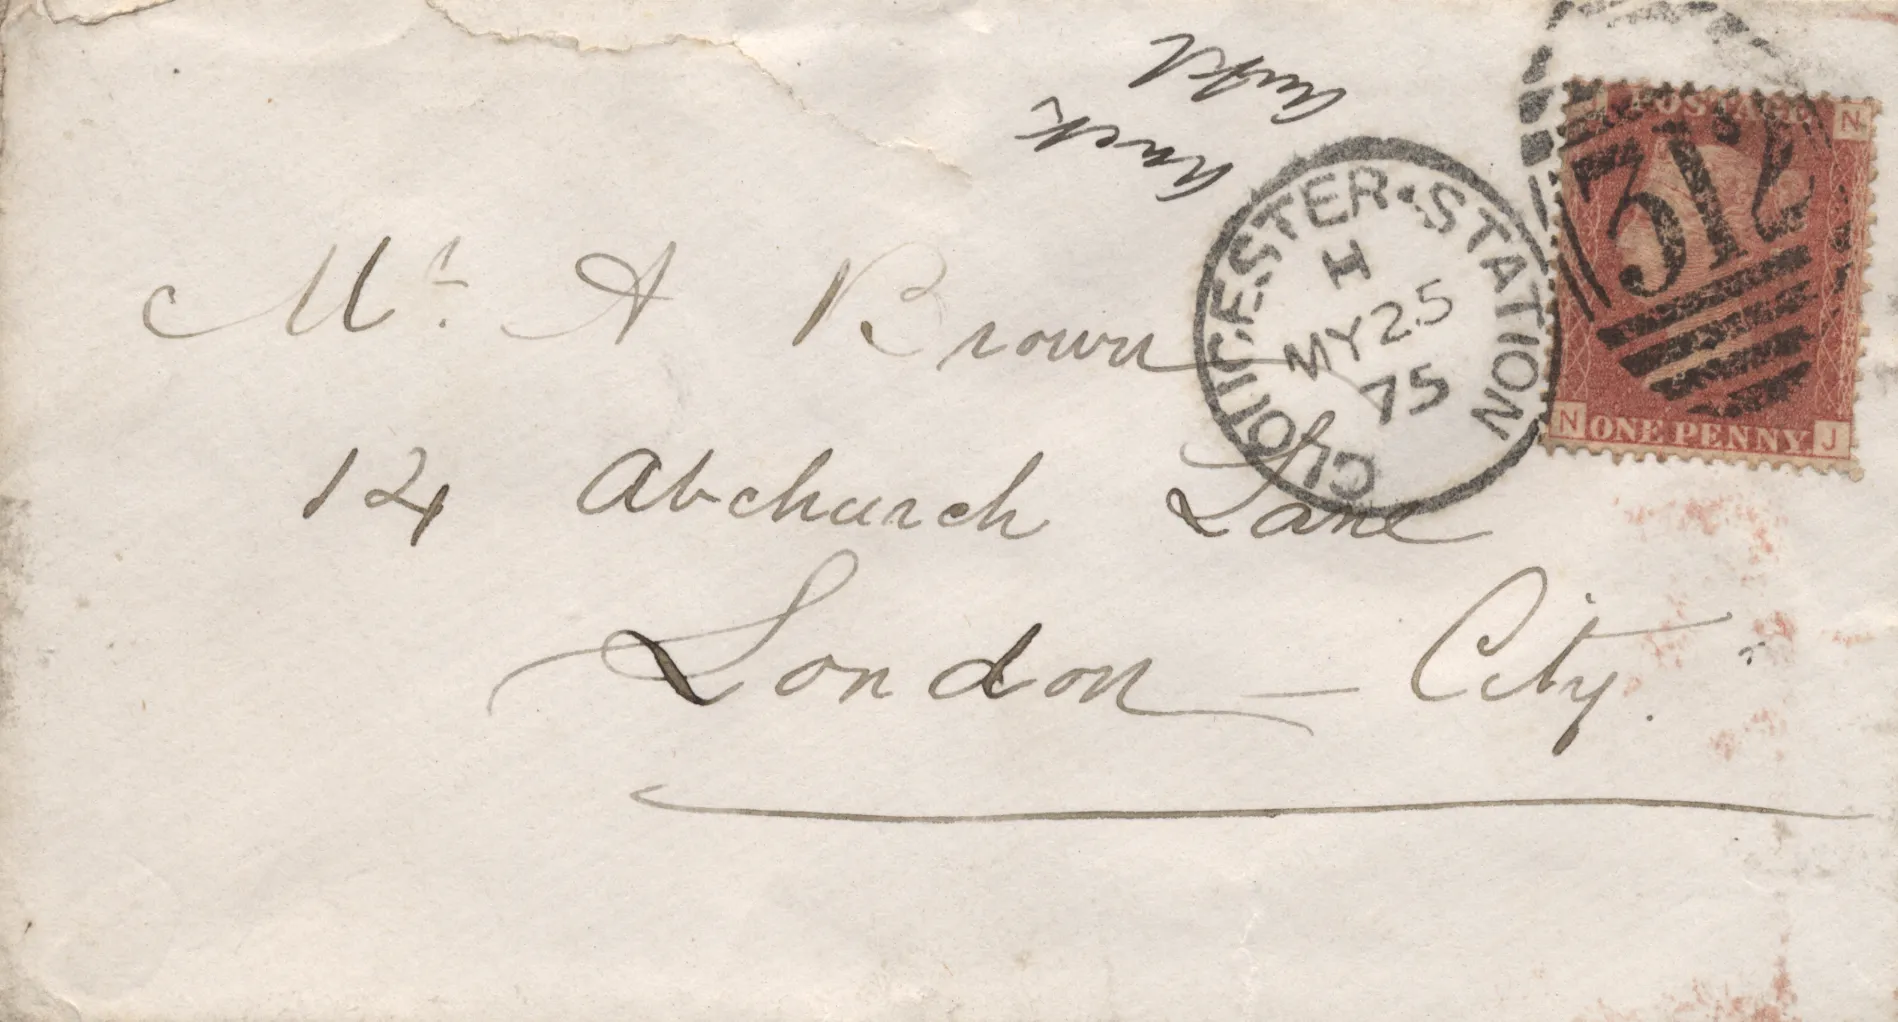 Mr. A Brown
14 Abchurch Lane
London — City.
GLOUCESTER · STATION
I
MY 25
75
J POSTAGE N
312
N ONE PENNY J